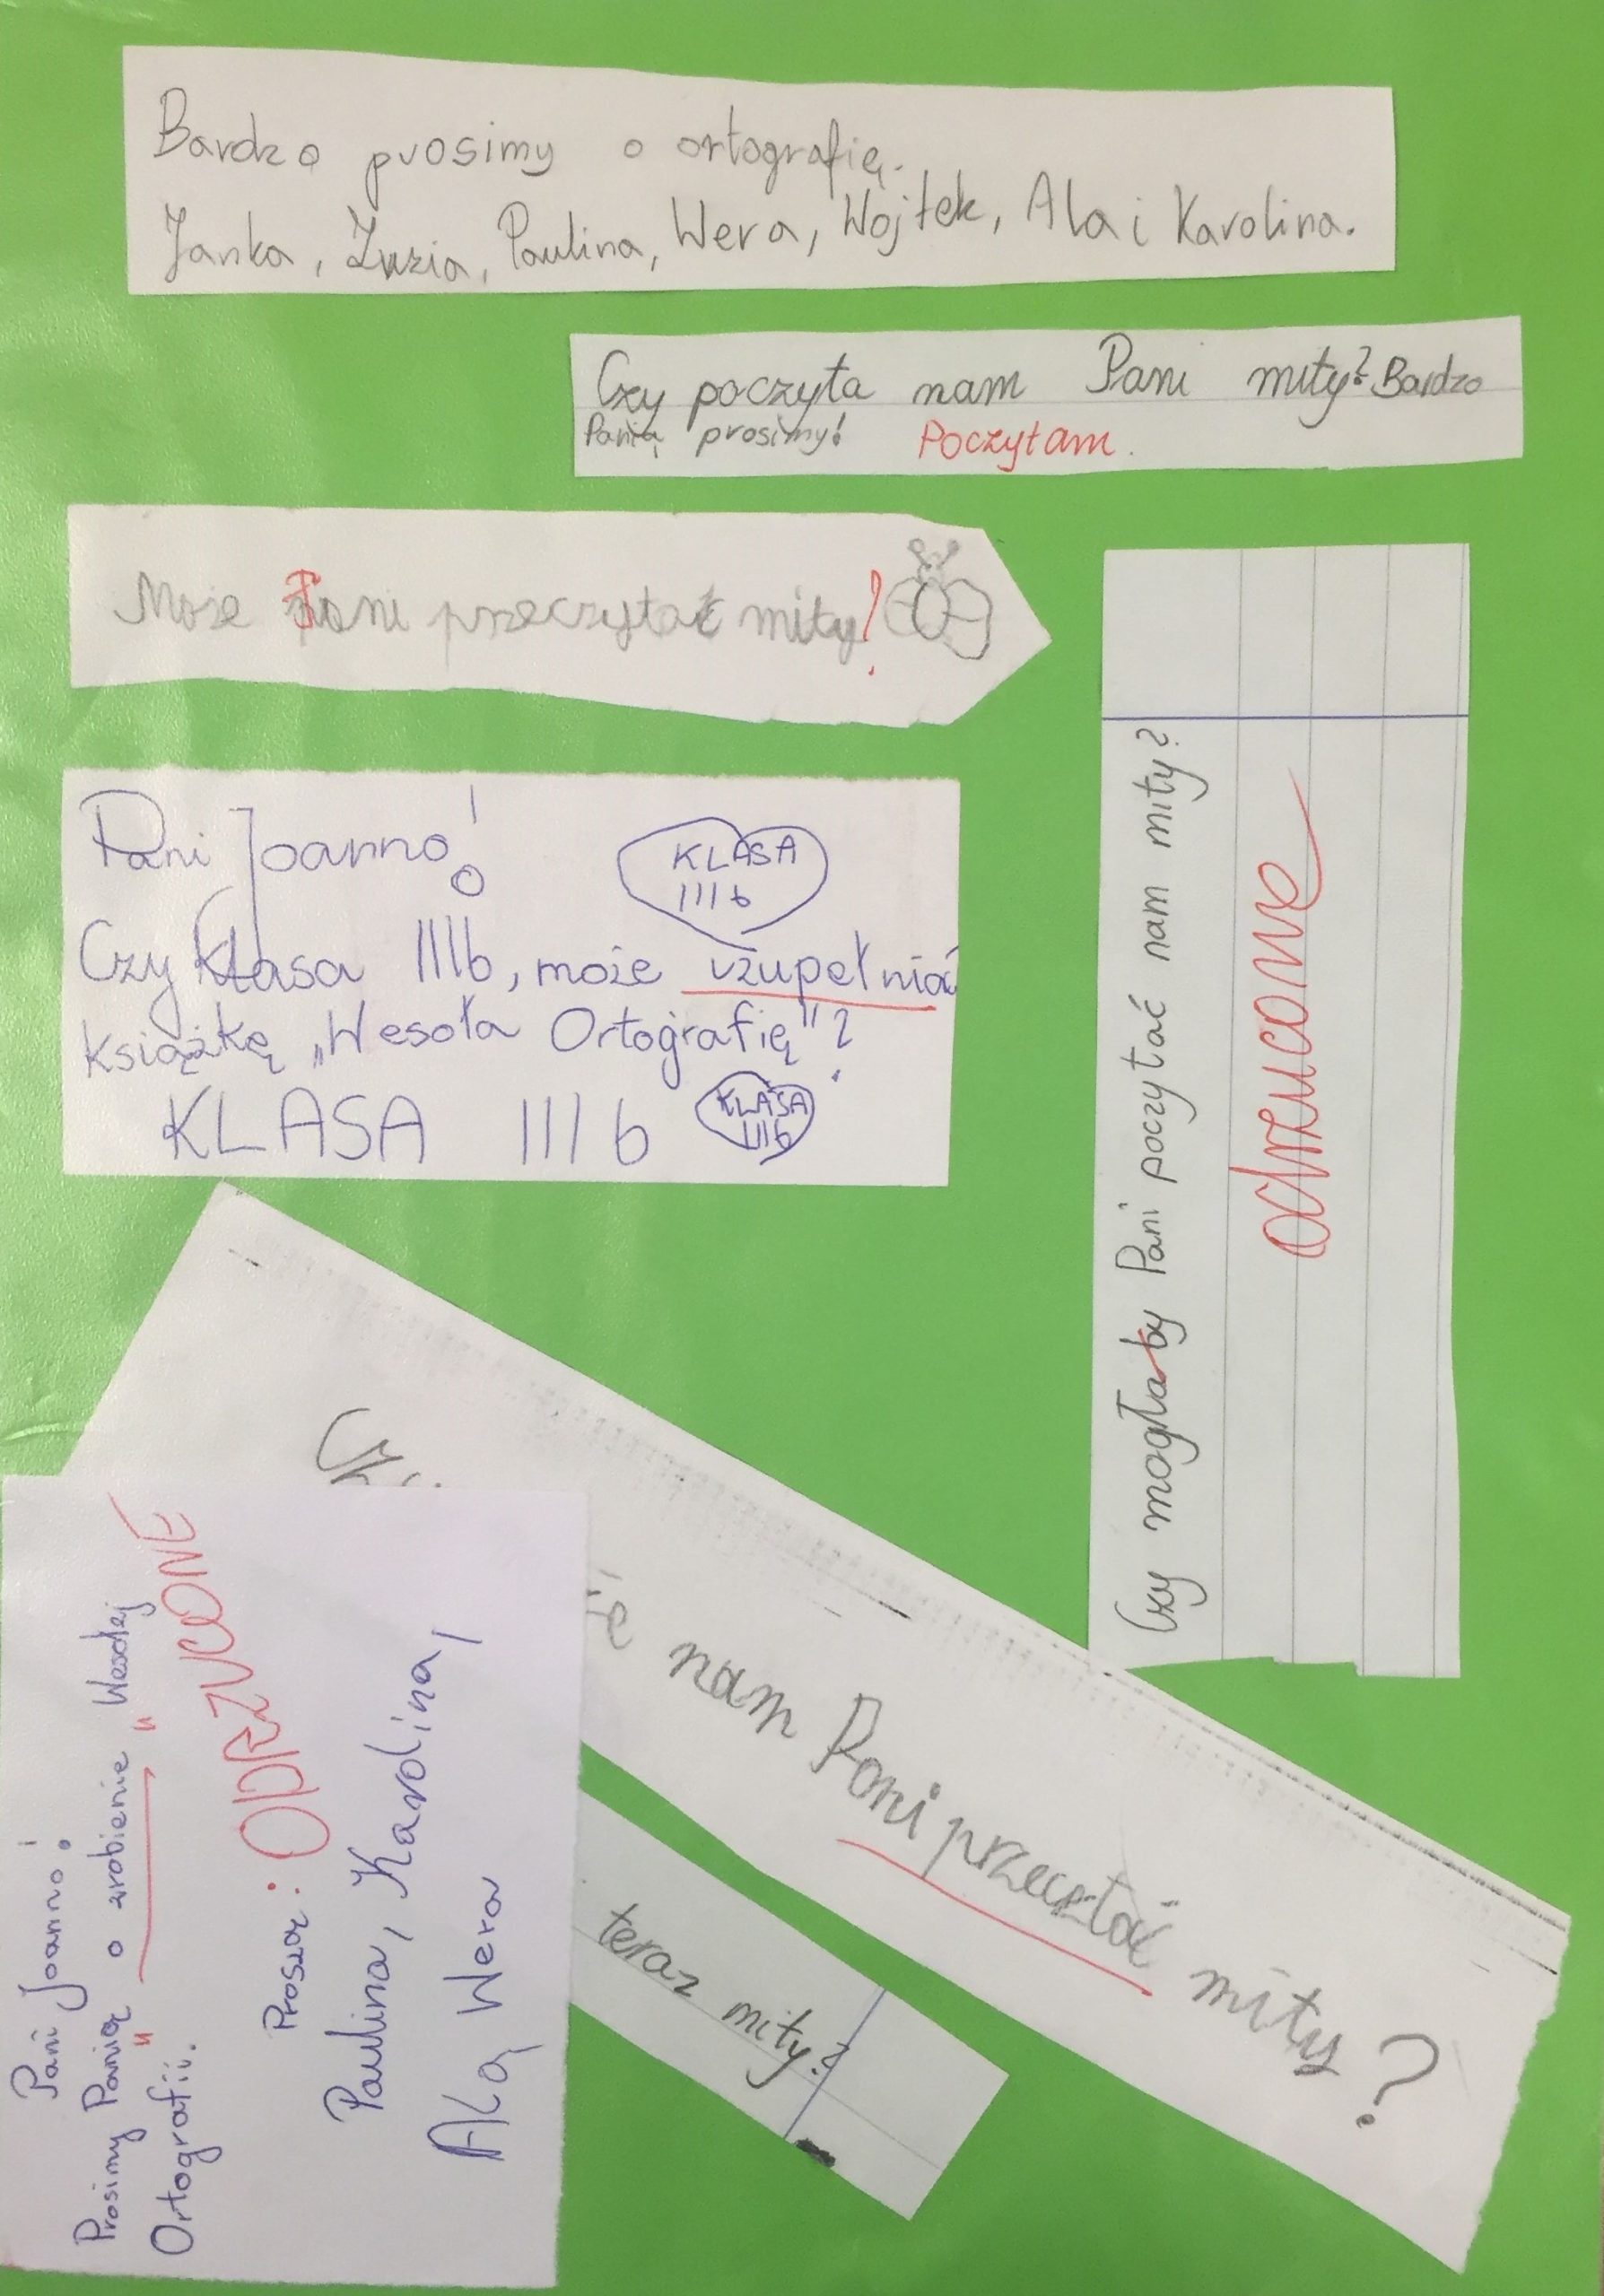 Bardzo prosimy o ortografię.
Janka, Zuzia, Paulina, Wera, Wojtek, Ala i Karolina.
Czy poczyta nam Pani mity? Bardzo
Panią prosimy! Poczytam.
Może Pani przeczytać mity?
Pani Joanno!
KLASA
III b
Czy klasa IIIb, może uzupełniać
książkę „Wesoła Ortografię"?
KLASA III b
KLASA
III b
Czy mogła by Pani poczytać nam mity?
odrzucone
nam Pani przecztać mity?
teraz mity?
Pani Joanno!
Prosimy Panią o zrobienie „Wesołej
Ortografii".
ODRZUCONE
Proszą:
Paulina, Karolina,
Alą Wera